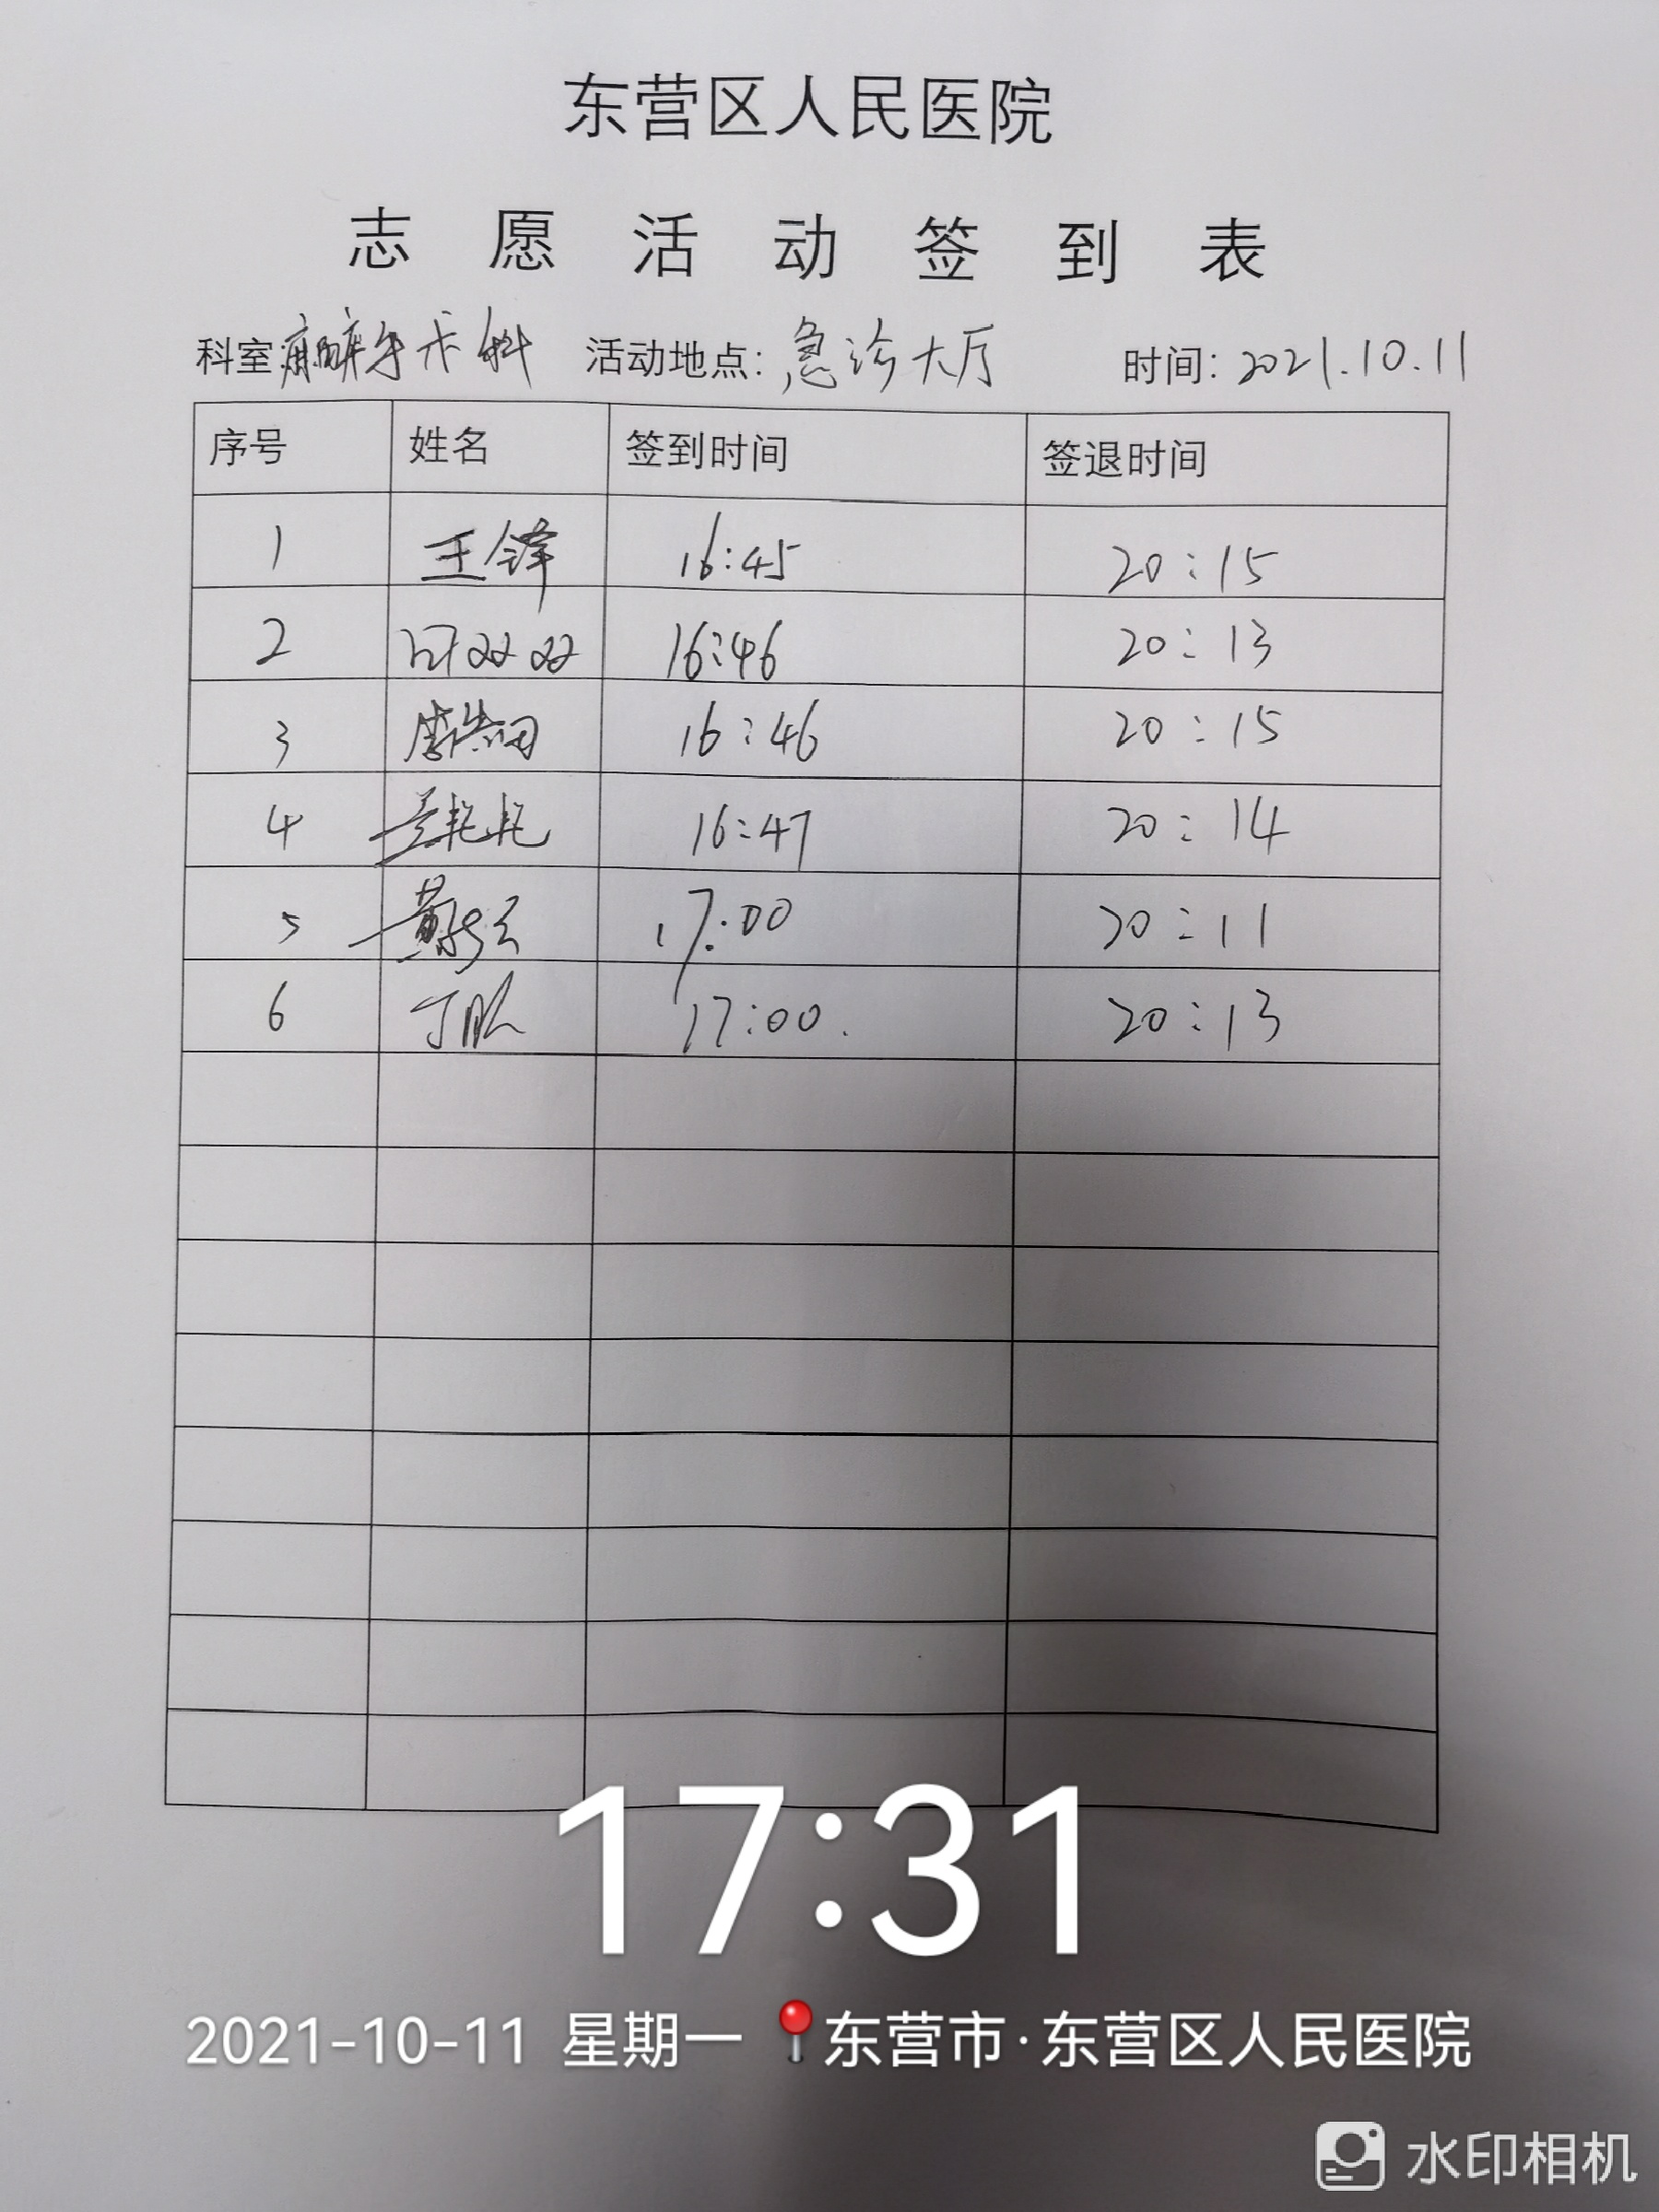 东营区人民医院
志愿活动签到表
科室:麻醉手术科 活动地点:急诊大厅 时间:2021.10.11
序号 姓名 签到时间 签退时间
1 王锋 16:45 20:15
2 双双 16:46 20:13
3 李 16:46 20:15
4 16:47 20:14
5 黄 17:00 20:11
6 丁 17:00. 20:13
17:31
2021-10-11 星期一 东营市·东营区人民医院
水印相机